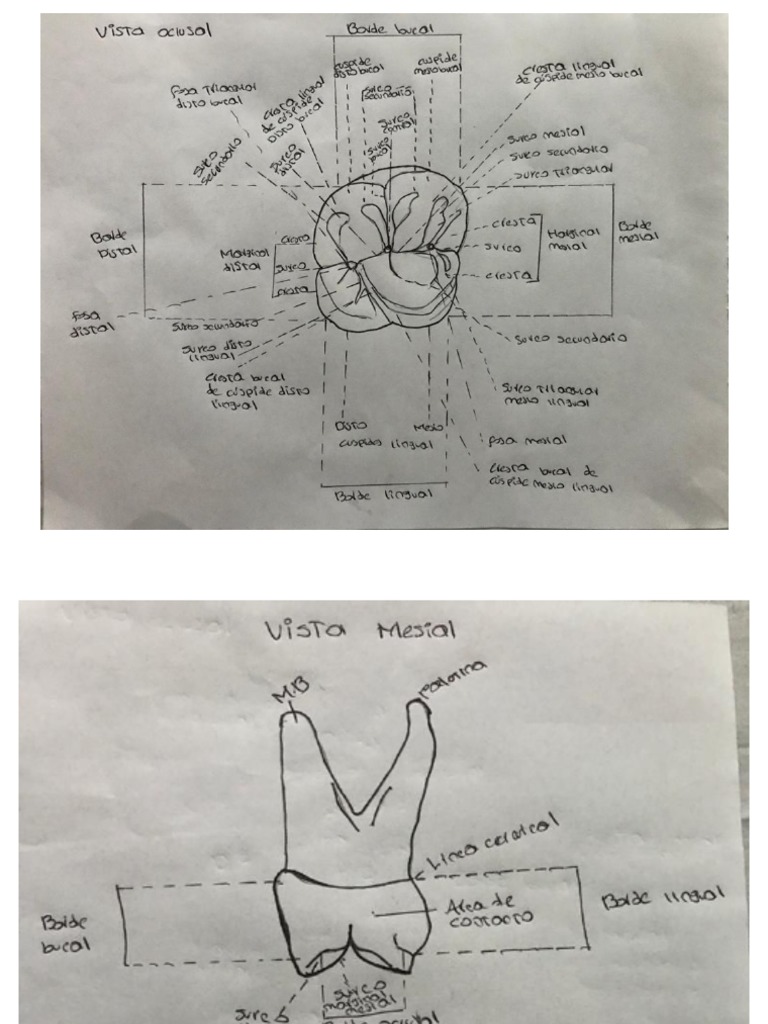 Vista oclusal
Borde bucal
cuspide
disto bucal
cuspide
mesio bucal
Cresta lingual
de cúspide mesio bucal
fosa Triangular
disto bucal
Cresta lingual
de cúspide
Disto bucal
surco
secundario
surco
central
surco
bucal
surco
secundario
surco
distal
surco mesial
surco secundario
surco Triangular
Borde
Distal
Marginal
distal
cresta
surco
cresta
cresta
surco
cresta
Marginal
mesial
Borde
mesial
fosa
distal
surco secundario
surco disto
lingual
Cresta bucal
de cúspide disto
lingual
surco secundario
surco Triangular
mesio lingual
Disto
Mesio
cuspide lingual
fosa mesial
Cresta bucal de
cúspide mesio lingual
Borde lingual
Vista Mesial
M.B
Palatina
Linea cervical
Area de
contacto
Borde
bucal
Borde lingual
surco
marginal
mesial